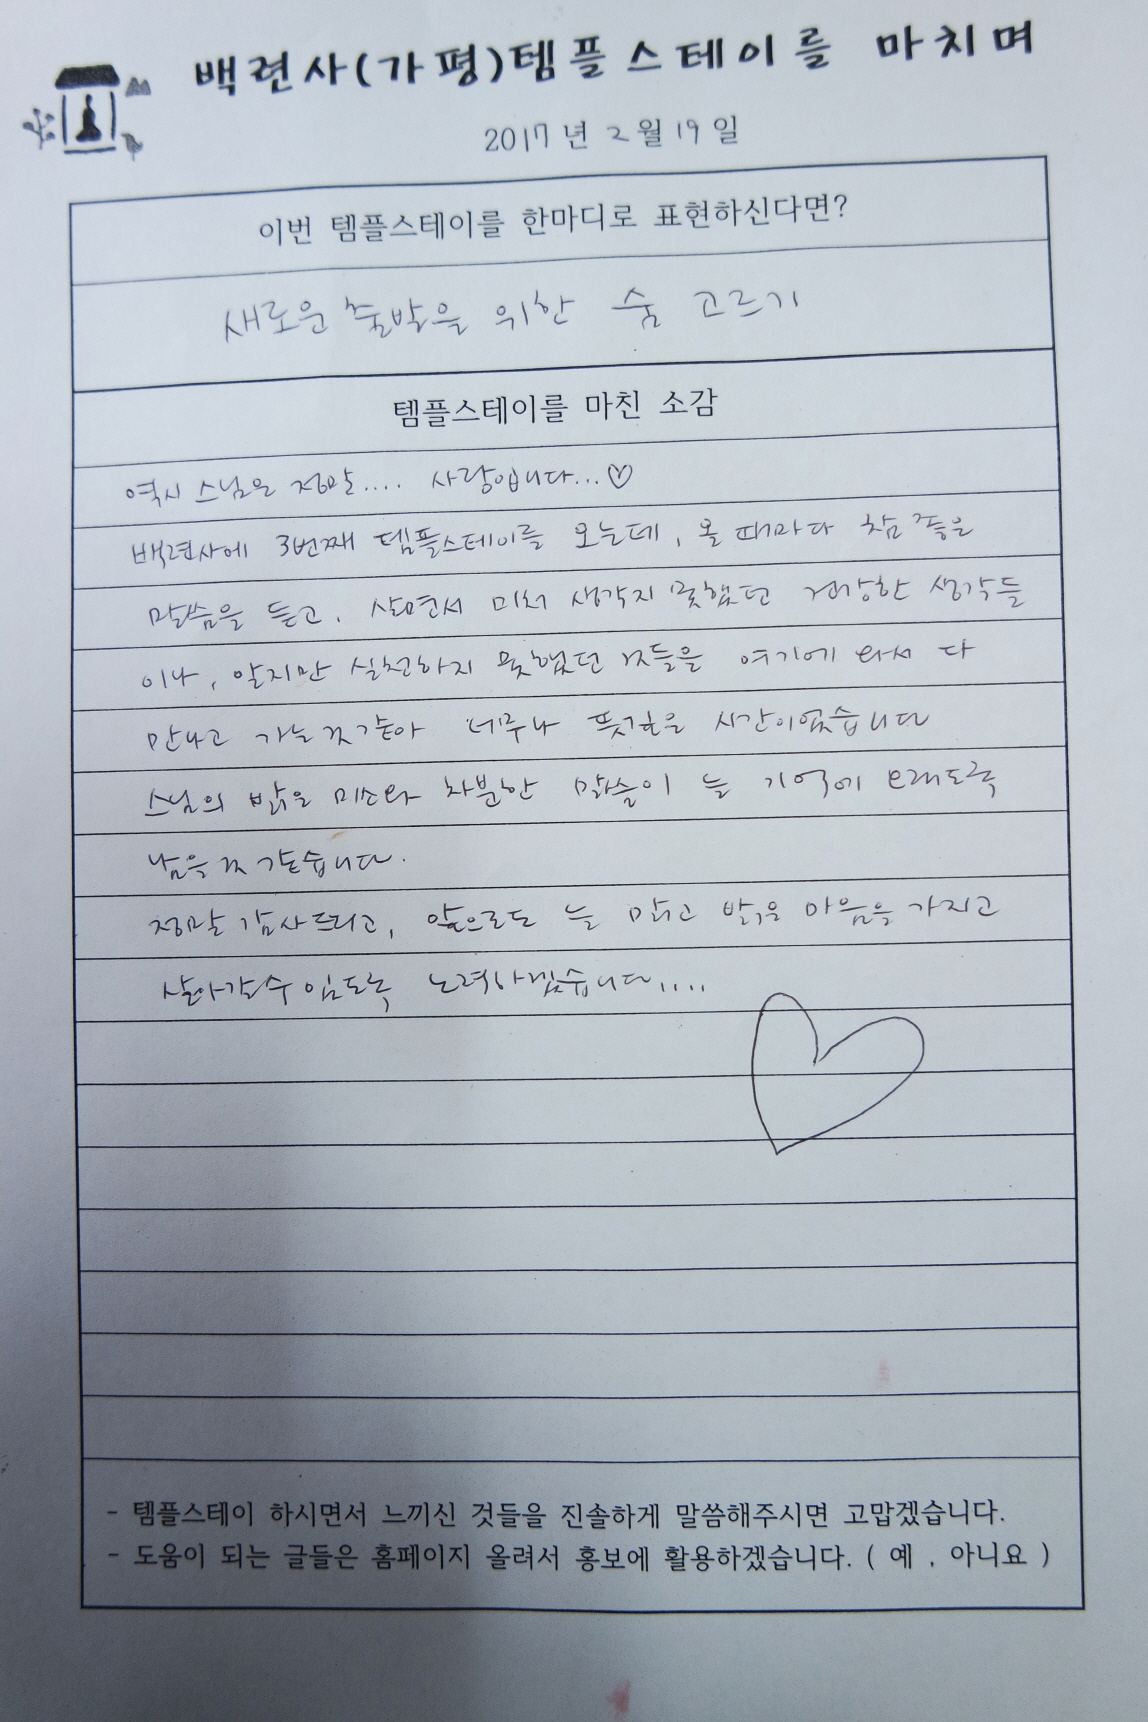 백련사(가평)템플스테이를 마치며
2017년 2월 19일
이번 템플스테이를 한마디로 표현하신다면?
새로운 출발을 위한 숨 고르기
템플스테이를 마친 소감
역시 스님은 정말.... 사랑입니다...♡
백련사에 3번째 템플스테이를 오는데, 올 때마다 참 좋은
말씀을 듣고, 살면서 미처 생각지 못했던 건강한 생각들
이나, 알지만 실천하지 못했던 것들을 여기에 와서 다
만나고 가는 것 같아 너무나 뜻깊은 시간이었습니다
스님의 밝은 미소와 차분한 말씀이 늘 기억에 오래도록
남을 것 같습니다.
정말 감사드리고, 앞으로도 늘 맑고 밝은 마음을 가지고
살아갈수 있도록 노력하겠습니다....
- 템플스테이 하시면서 느끼신 것들을 진솔하게 말씀해주시면 고맙겠습니다.
- 도움이 되는 글들은 홈페이지 올려서 홍보에 활용하겠습니다. ( 예 , 아니요 )